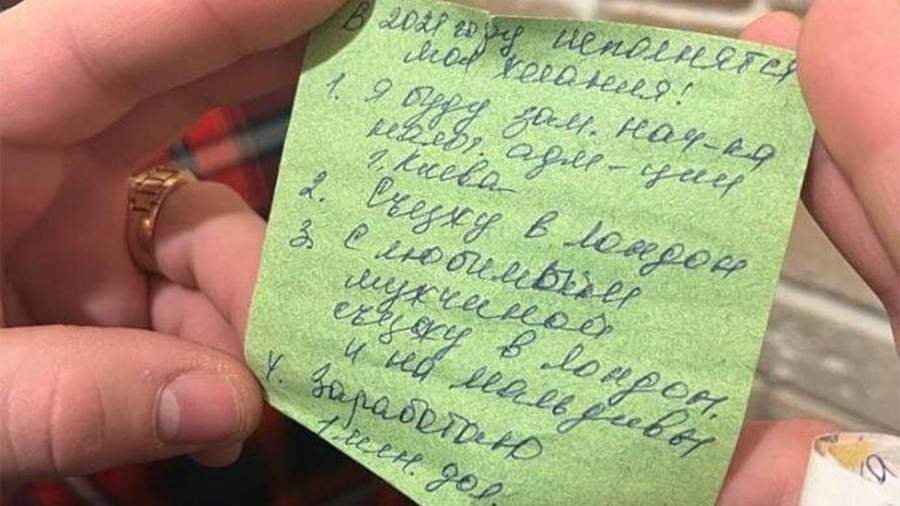 В 2021 году исполнятся
мои желания!
1. Я буду зам. нач-ка
налог. адм-ции
г. Киева
2. Съезжу в Лондон
3. С любимый
мужчиной
съезжу в Лондон
и на Мальдивы
4. Заработаю
1 млн. дол.
Я